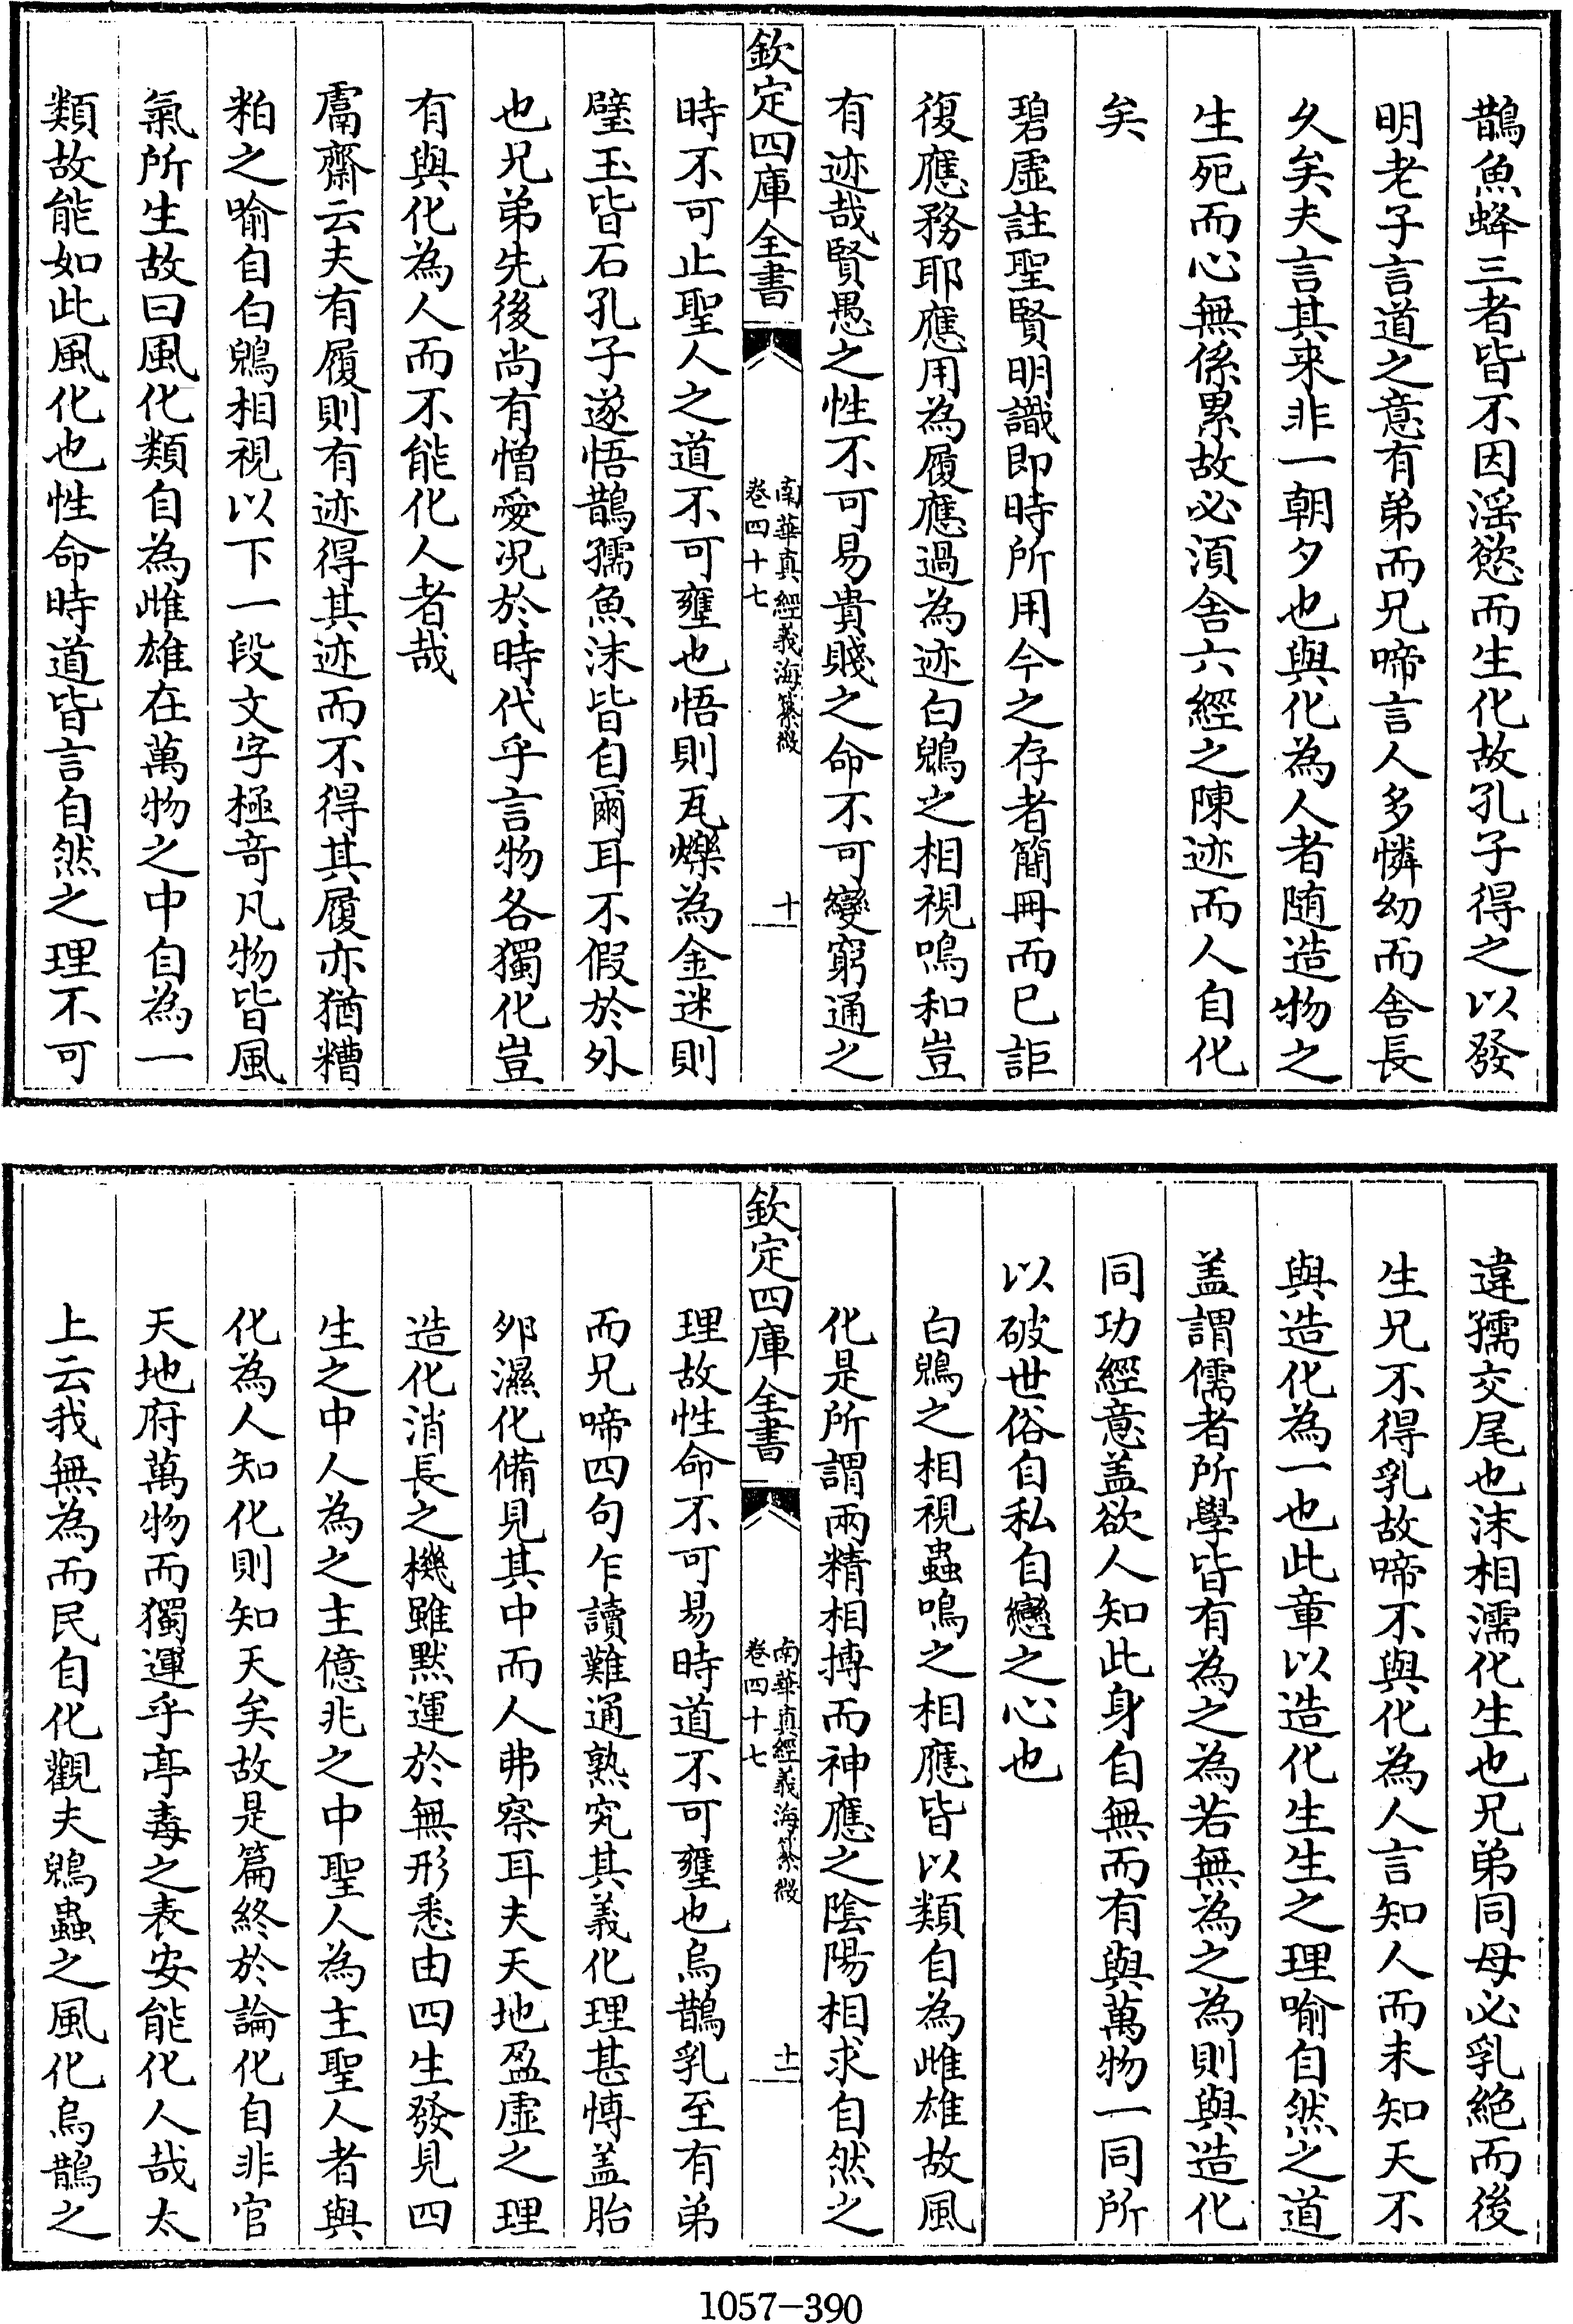 鵲魚蜂三者皆不因淫慾而生化故孔子得之以發
明老子言道之意有弟而兄啼言人多憐幼而舎長
久矣夫言其来非一朝夕也與化為人者随造物之
生死而心無係累故必湏舎六經之陳迹而人自化
矣
碧虚註聖賢明識即時所用今之存者簡冊而已詎
復應務耶應用為履應過為迹白鶂之相視鳴和豈
有迹哉賢愚之性不可易貴賤之命不可變窮通之
欽定四庫全書
南華真經義海纂微
卷四十七
十一
時不可止聖人之道不可壅也悟則瓦爍為金迷則
璧玉皆石孔子遂悟鵲孺魚沫皆自爾耳不假於外
也兄弟先後尚有憎愛况於時代乎言物各獨化豈
有與化為人而不能化人者哉
鬳齋云夫有履則有迹得其迹而不得其履亦猶糟
粕之喻自白鶂相視以下一段文字極竒凡物皆風
氣所生故曰風化類自為雌雄在萬物之中自為一
類故能如此風化也性命時道皆言自然之理不可
違孺交尾也沫相濡化生也兄弟同母必乳絶而後
生兄不得乳故啼不與化為人言知人而未知天不
與造化為一也此章以造化生生之理喻自然之道
盖謂儒者所學皆有為之為若無為之為則與造化
同功經意盖欲人知此身自無而有與萬物一同所
以破世俗自私自戀之心也
白鶂之相視蟲鳴之相應皆以類自為雌雄故風
化是所謂兩精相搏而神應之陰陽相求自然之
欽定四庫全書
南華真經義海纂微
卷四十七
十一
理故性命不可易時道不可壅也烏鵲乳至有弟
而兄啼四句乍讀難通熟究其義化理甚慱盖胎
夘濕化備見其中而人弗察耳夫天地盈虚之理
造化消長之機雖黙運於無形悉由四生發見四
生之中人為之主億兆之中聖人為主聖人者與
化為人知化則知天矣故是篇終於論化自非官
天地府萬物而獨運乎亭毒之表安能化人哉太
上云我無為而民自化觀夫鶂蟲之風化烏鵲之
1057-390